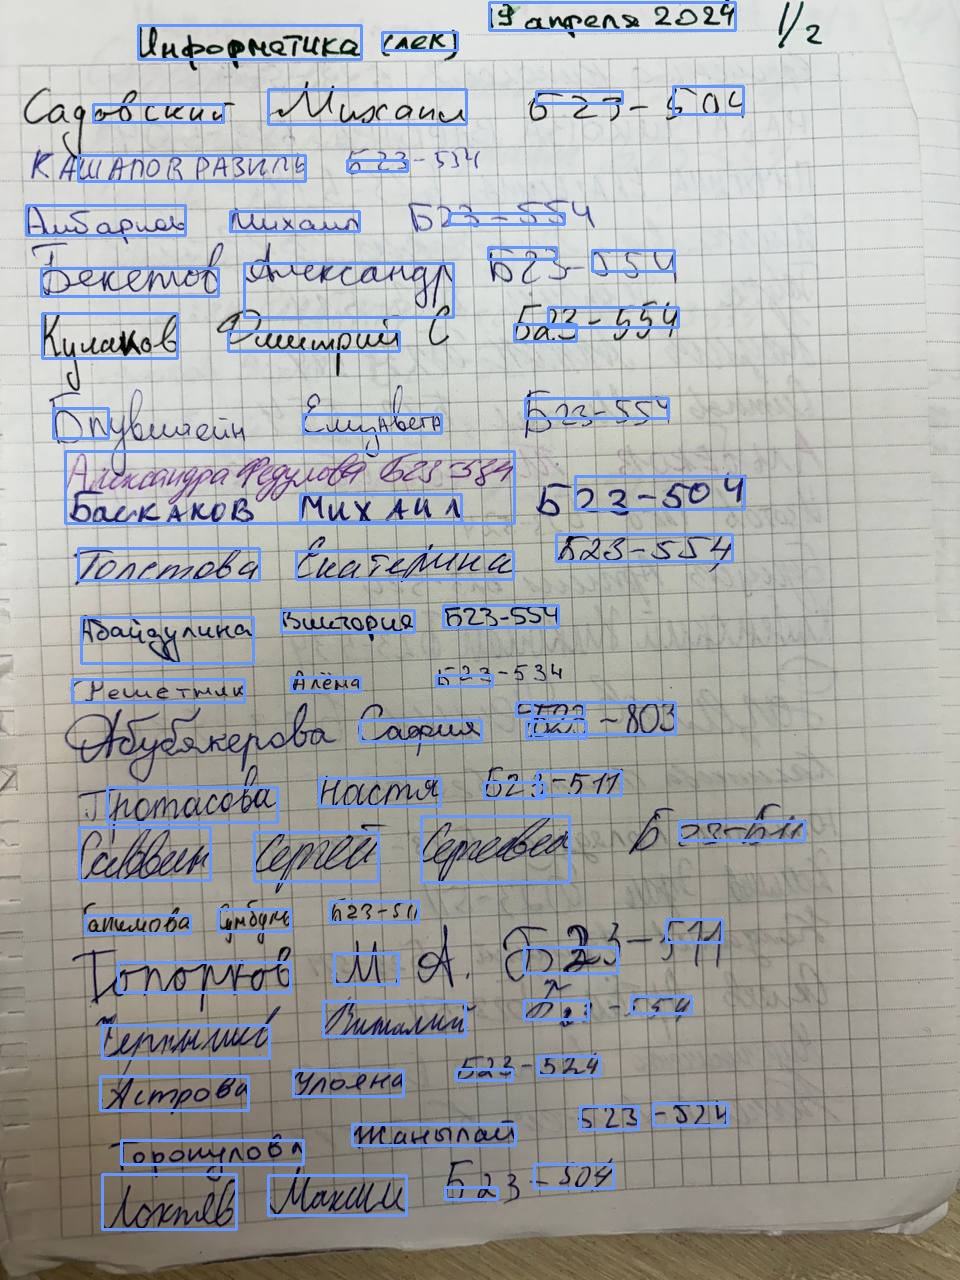 19 апреля 2024 1/2
Информатика (лек)
Садовский Михаил Б23-504
КАШАПОВ РАЗИЛЬ Б23-534
Амбарцов Михаил Б23-554
Бекетов Александр Б23-554
Кулаков Дмитрий С Б23-554
Елизавета Б23-554
Александра Федулова Б23-534
Баскаков Михаил Б23-504
Толстова Екатерина Б23-554
Абайдулина Виктория Б23-554
Решетняк Алёна Б23-534
Абубякерова Сафия -803
Протасова Настя Б23-511
Саввин Сергей Сергеевич Б23-511
Галимова Сумбуль Б23-511
Топорков М. А. Б23-511
Чернышков Виталий Б23-554
Астрова Ульяна Б23-524
Торокулова Жанылай Б23-524
Локтев Максим Б23-504